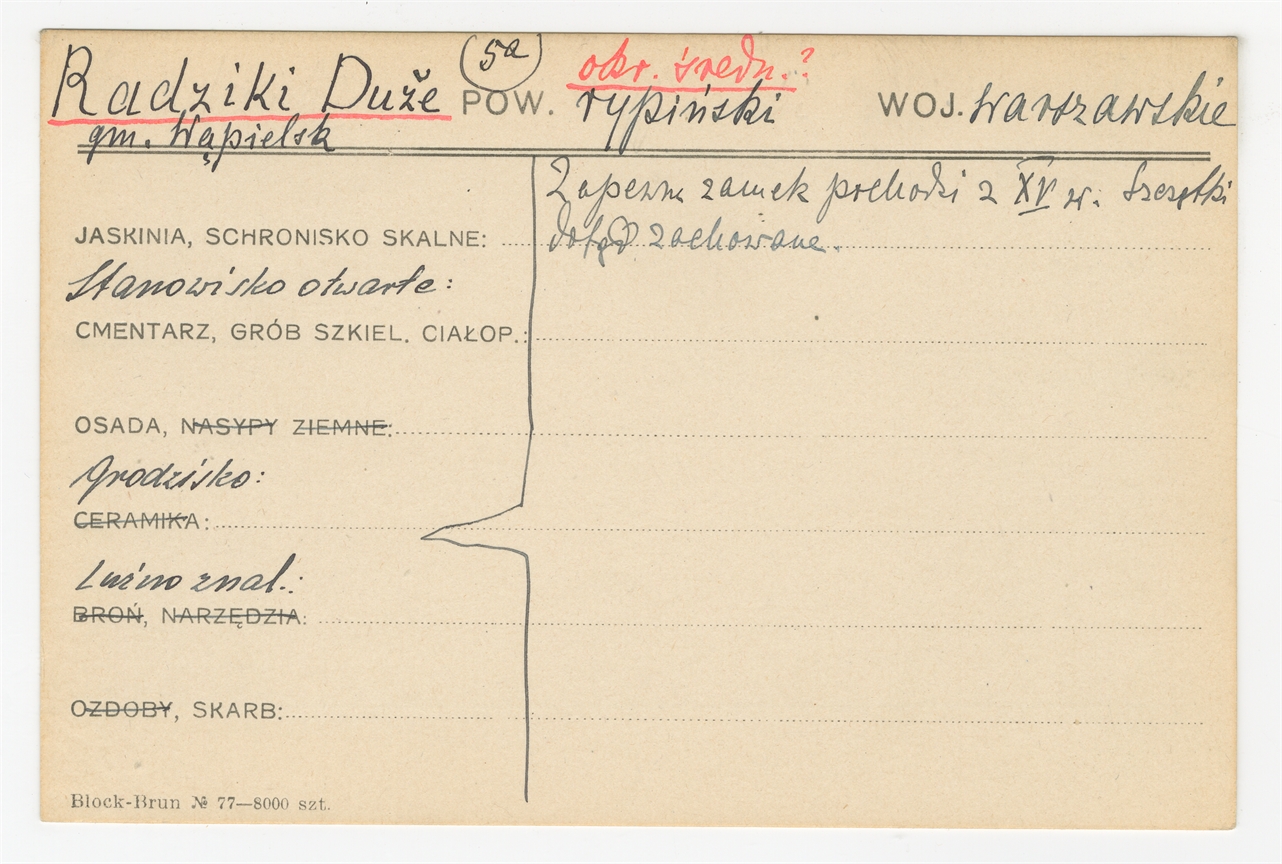 (5a) okr. średn.?
Radziki Duże POW. rypiński WOJ. warszawskie
gm. Wąpielsk
Zapewn zamek pochodzi z XV w. Szczątki
dotąd zachowane.
JASKINIA, SCHRONISKO SKALNE:
Stanowisko otwarte:
CMENTARZ, GRÓB SZKIEL. CIAŁOP.:
OSADA, NASYPY ZIEMNE:
Grodzisko:
CERAMIKA:
Luźno znal.:
BROŃ, NARZĘDZIA:
OZDOBY, SKARB:
Block-Brun № 77—8000 szt.